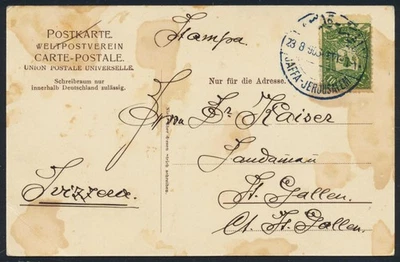 POSTKARTE
WELTPOSTVEREIN
CARTE-POSTALE.
UNION POSTALE UNIVERSELLE.
Schreibraum nur
innerhalb Deutschland zulässig.
Stampa
Nur für die Adresse.
JAFFA-JERUSALEM
Dr Kaiser
Landaman
St. Gallen.
Ct. St. Gallen.
Svizzera.